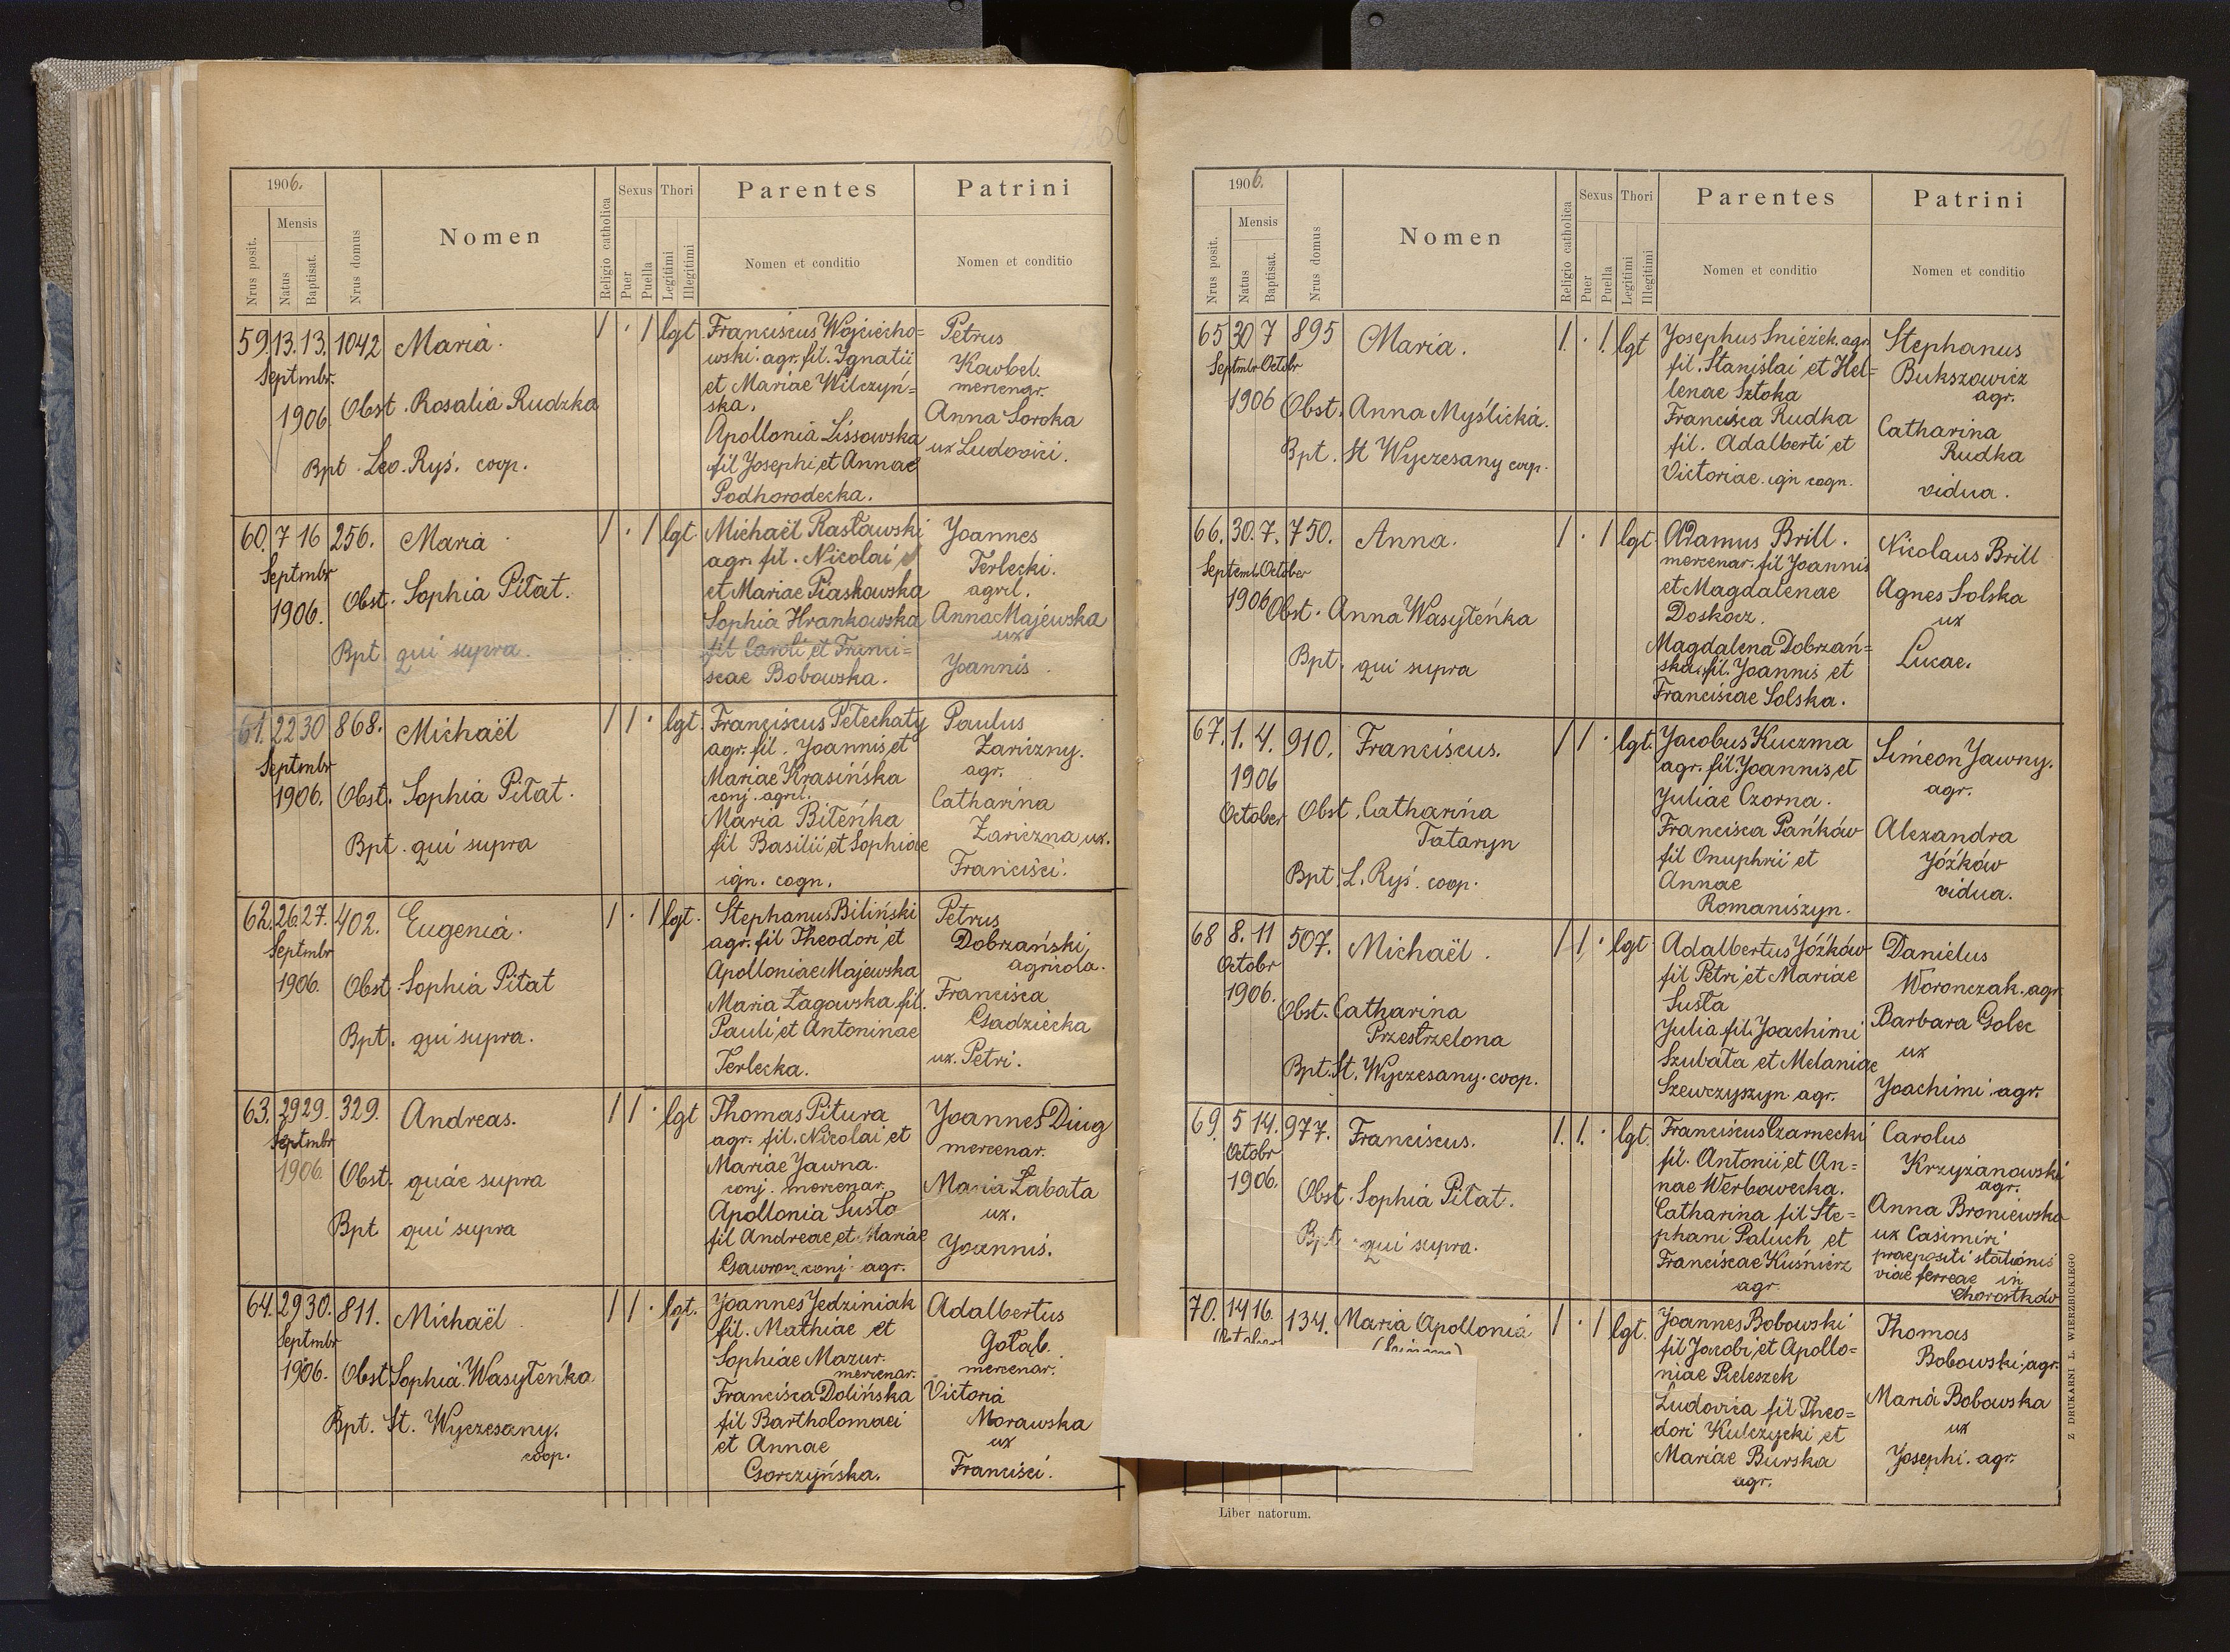 260
1906.
Nrus posit.
Mensis
Natus
Baptisat.
Nrus domus
Nomen
Religio catholica
Sexus
Puer
Puella
Thori
Legitimi
Illegitimi
Parentes
Nomen et conditio
Patrini
Nomen et conditio
59. 13. 13. 1042 Maria. 1 . 1 lgt
Septmbr.
1906
Obst. Rosalia Rudzka
Bpt. Leo. Ryś. coop.
Franciscus Wojciecho=
wski. agr. fil. Ignatii
et Mariae Wilczyń=
ska.
Apollonia Lissowska
fil Josephi et Annae
Podhorodecka.
Petrus
Kawbel.
mercenar.
Anna Soroka
ux Ludovici.
60. 7 16 256. Maria 1 . 1 lgt.
Septmbr
1906.
Obst. Sophia Piłat.
Bpt qui supra.
Michaël Rasławski
agr. fil. Nicolai
et Mariae Piaskowska
Sophia Hrankowska
fil Caroli et Franci=
scae Bobowska.
Joannes
Terlecki.
agril.
Anna Majewska
ux
Joannis.
61. 22 30 868. Michaël 1 1 . lgt.
Septmbr
1906.
Obst. Sophia Piłat.
Bpt. qui supra
Franciscus Pełechaty
agr. fil. Joannis et
Mariae Krasińska
conj. agril.
Maria Biłeńka
fil Basilii et Sophiae
ign. cogn.
Paulus
Zariczny.
agr.
Catharina
Zariczna ux.
Francisci.
62. 26. 27. 402. Eugenia. 1 . 1 lgt.
Septmbr
1906.
Obst. Sophia Piłat
Bpt. qui supra.
Stephanus Biliński
agr. fil Theodori et
Apolloniae Majewska
Maria Łagowska fil.
Pauli et Antoninae
Terlecka.
Petrus
Dobrzański
agricola.
Francisca
Gsadziecka
ux. Petri.
63. 29 29. 329. Andreas. 1 1 . lgt
Septmbr
1906.
Obst. quae supra
Bpt qui supra
Thomas Pitura
agr. fil. Nicolai et
Mariae Jawna.
conj. mercenar.
Apollonia Susto
fil Andreae et Mariae
Gawron conj. agr.
Joannes Diug
mercenar.
Maria Łabata
ux.
Joannis.
64. 29 30. 811. Michaël 1 1 . lgt.
Septmbr
1906.
Obst Sophia Wasyłeńka
Bpt. St. Wyczesany.
coop.
Joannes Jedziniak
fil. Mathiae et
Sophiae Mazur.
mercenar.
Francisca Dolińska
fil Bartholomaei
et Annae
Gorczyńska.
Adalbertus
Gołąb.
mercenar.
Victoria
Morawska
ux
Francisci.
261
1906.
Nrus posit.
Mensis
Natus
Baptisat.
Nrus domus
Nomen
Religio catholica
Sexus
Puer
Puella
Thori
Legitimi
Illegitimi
Parentes
Nomen et conditio
Patrini
Nomen et conditio
65 30 7 895 Maria. 1. . 1. lgt
Septmbr Octobr
1906
Obst. Anna Myślicka.
Bpt. St Wyczesany coop.
Josephus Snieżek. agr.
fil. Stanislai et Hel=
lenae Sztoka
Francisca Rudka
fil. Adalberti et
Victoriae. ign cogn.
Stephanus
Bukszowicz
agr.
Catharina
Rudka
vidua.
66. 30. 7. 750. Anna. 1 . 1 lgt.
Septemb. October
1906
Obst. Anna Wasyłeńka
Bpt. qui supra
Adamus Brill.
mercenar. fil Joannis
et Magdalenae
Doskocz.
Magdalena Dobrzań=
ska. fil. Joannis et
Franciscae Solska.
Nicolaus Brill
Agnes Solska
ux
Lucae.
67. 1. 4. 910. Franciscus. 1 1 . lgt.
1906
October
Obst. Catharina
Tataryn
Bpt. L. Ryś. coop.
Jacobus Kuczma
agr. fil. Joannis et
Juliae Czorna.
Francisca Pańków
fil Onuphrii et
Annae
Romaniszyn.
Simeon Jawny.
agr.
Alexandra
Jóźków
vidua.
68 8. 11 507. Michaël. 1 1. . lgt.
Octobr
1906.
Obst. Catharina
Przestrzelona
Bpt. St. Wyczesany. coop.
Adalbertus Jóźków
fil Petri et Mariae
Susta
Julia fil. Joachimi
Szubata et Melaniae
Szewczyszyn agr.
Danielus
Woronczak. agr.
Barbara Golec
ux
Joachimi. agr.
69. 5 14. 977. Franciscus. 1. 1. . lgt.
Octobr
1906.
Obst. Sophia Piłat.
Bpt. qui supra.
Franciscus Czarnecki
fil. Antonii et An=
nae Werbowecka.
Catharina fil Ste=
phani Paluch et
Franciscae Kuśnierz
agr.
Carolus
Krzyżanowski
agr.
Anna Broniewska
ux Casimiri
praepositi stationis
viae ferreae in
Chorostków
70. 14 16. 134. Maria Apollonia 1 . 1 lgt.
October
Joannes Bobowski
fil Jacobi et Apollo=
niae Pieleszek
Ludovica fil Theo=
dori Kulczycki et
Mariae Burska
agr.
Thomas
Bobowski. agr.
Maria Bobowska
ux
Josephi. agr.
Liber natorum.
Z DRUKARNI L. WIERZBICKIEGO